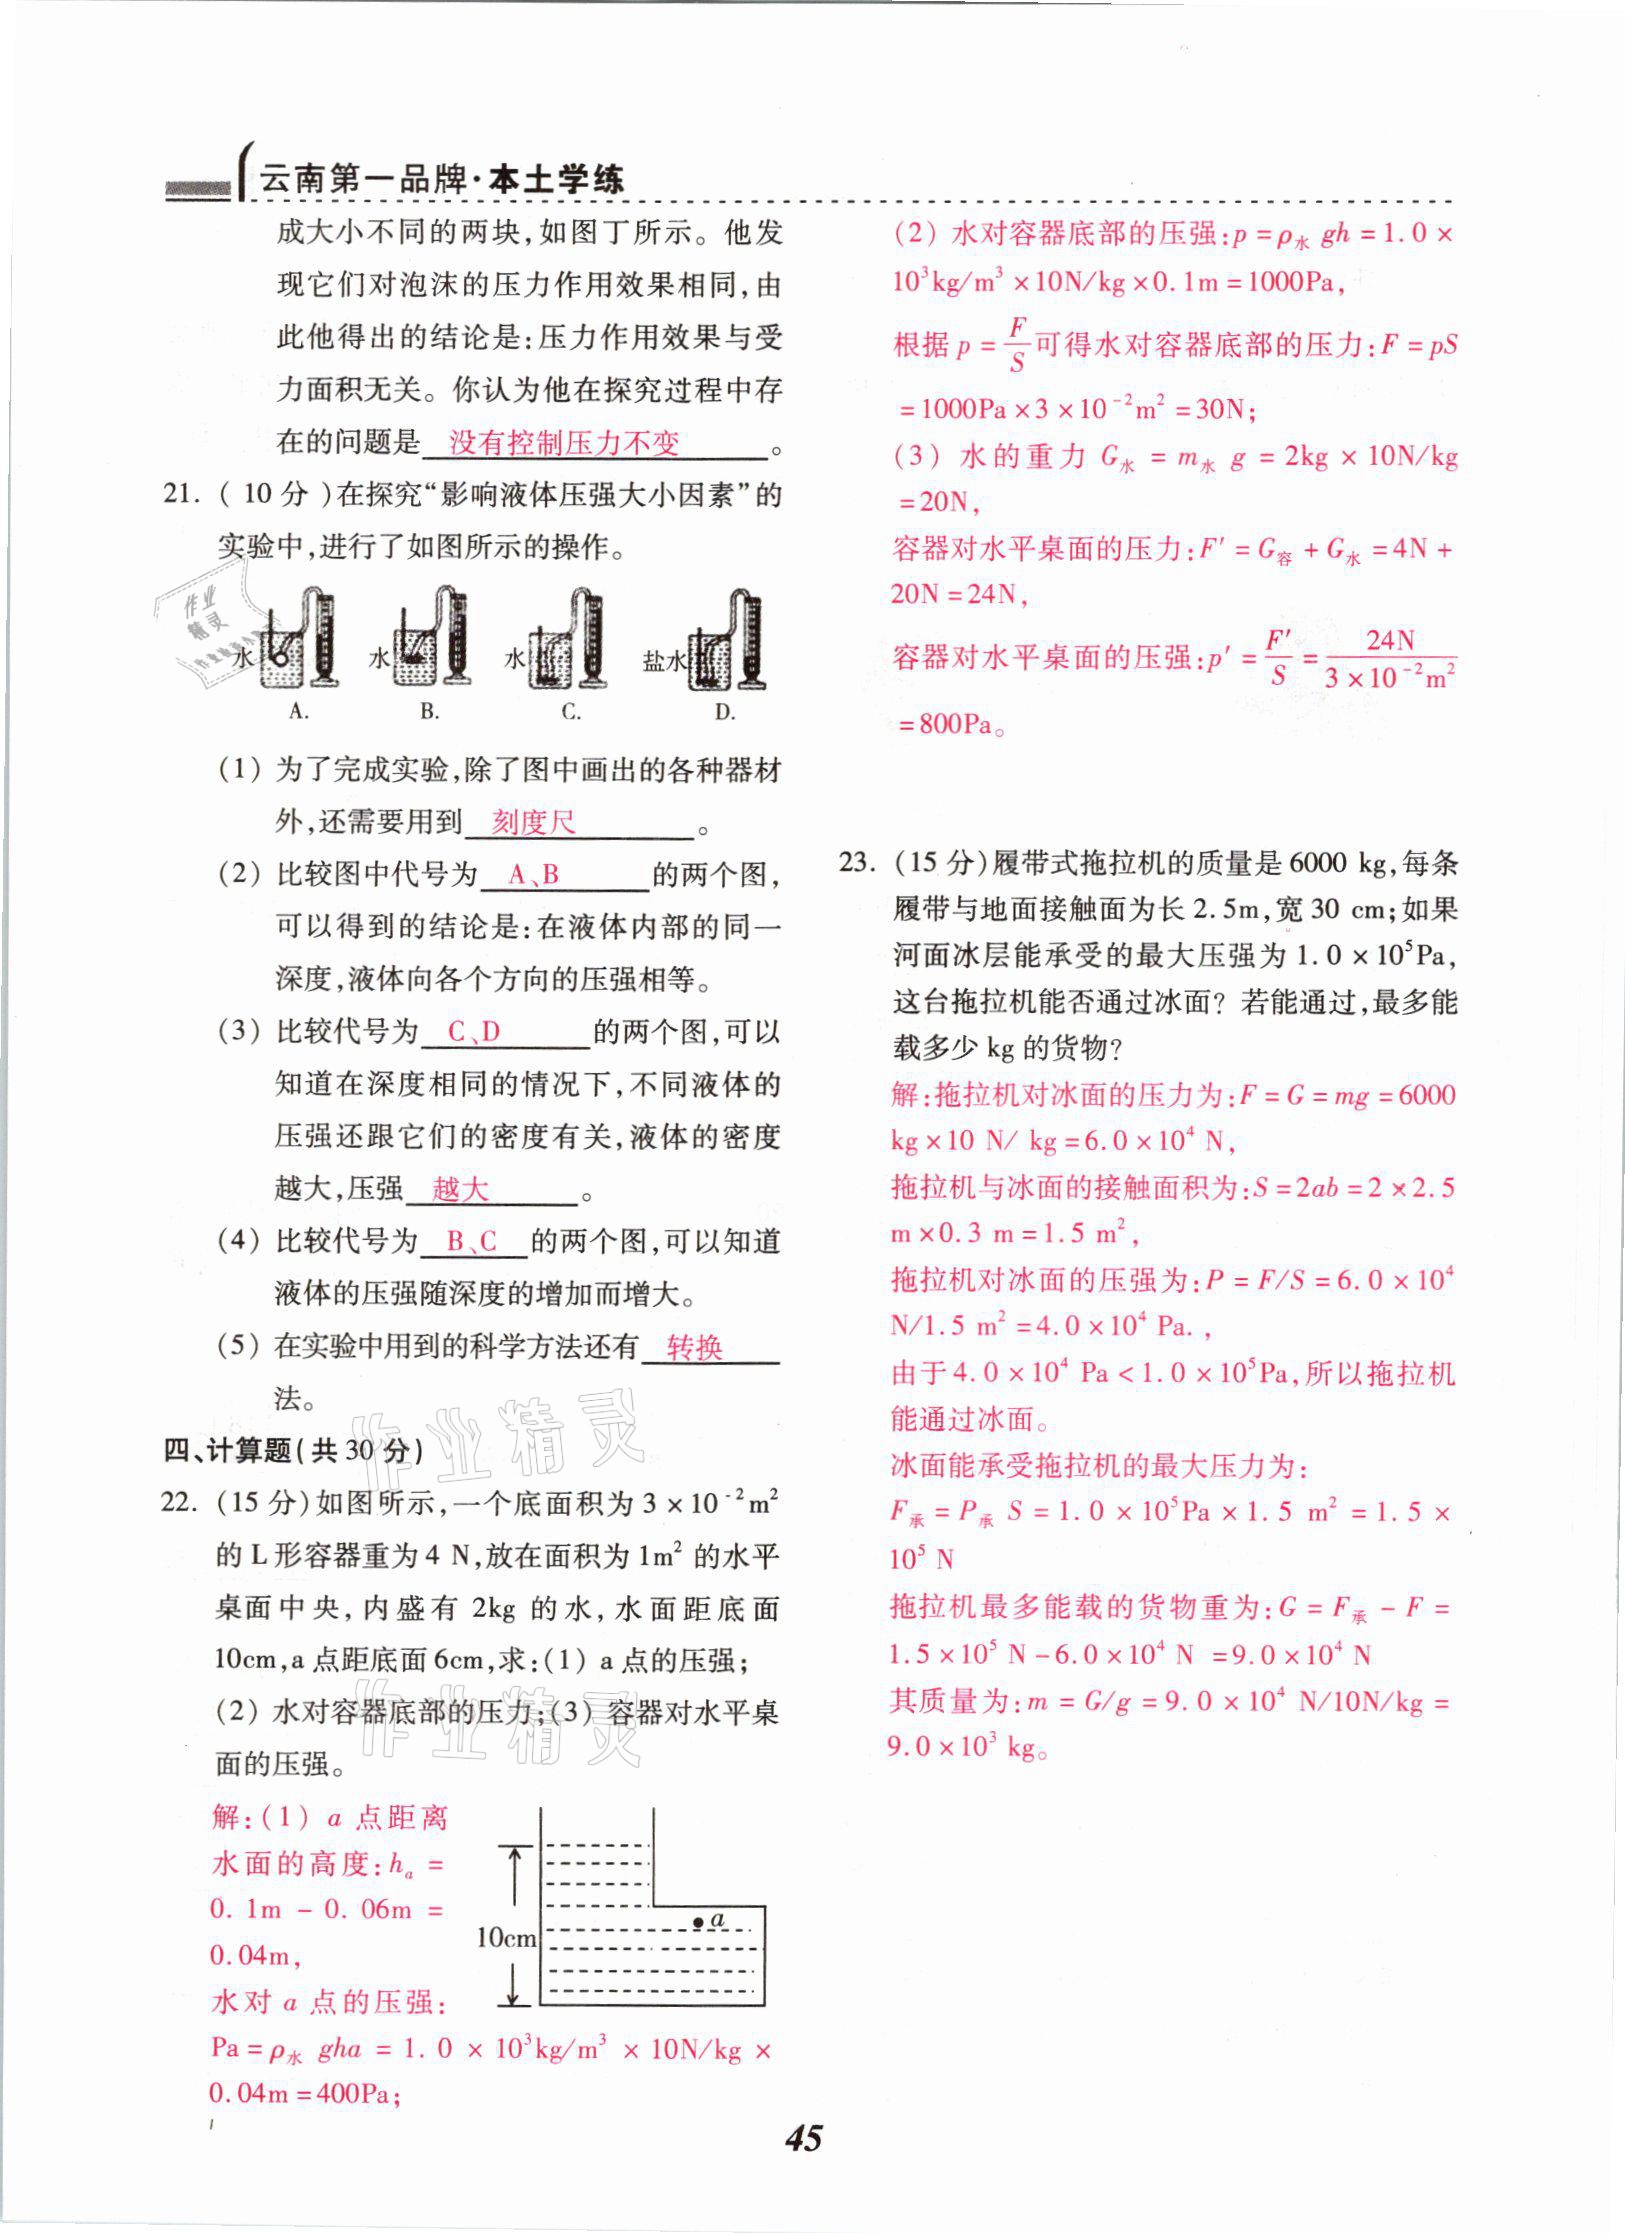 云南第一品牌·本土学练
成大小不同的两块,如图丁所示。他发
现它们对泡沫的压力作用效果相同,由
此他得出的结论是:压力作用效果与受
力面积无关。你认为他在探究过程中存
在的问题是 没有控制压力不变 。
21. ( 10 分 )在探究“影响液体压强大小因素”的
实验中,进行了如图所示的操作。
作业
精灵
水 水 水 盐水
A. B. C. D.
(1) 为了完成实验,除了图中画出的各种器材
外,还需要用到 刻度尺 。
(2) 比较图中代号为 A、B 的两个图,
可以得到的结论是:在液体内部的同一
深度,液体向各个方向的压强相等。
(3) 比较代号为 C、D 的两个图,可以
知道在深度相同的情况下,不同液体的
压强还跟它们的密度有关,液体的密度
越大,压强 越大 。
(4) 比较代号为 B、C 的两个图,可以知道
液体的压强随深度的增加而增大。
(5) 在实验中用到的科学方法还有 转换
法。
作业精灵
四、计算题(共 30 分)
22. (15 分)如图所示,一个底面积为 3 × 10⁻²m²
的 L 形容器重为 4 N,放在面积为 1m² 的水平
桌面中央, 内盛有 2kg 的水, 水面距底面
10cm,a 点距底面 6cm,求:(1) a 点的压强;
(2) 水对容器底部的压力;(3) 容器对水平桌
面的压强。
作业精灵
解:(1) a 点距离
水面的高度:hₐ =
0. 1m - 0. 06m =
0.04m,
水对 a 点的压强:
10cm
a
Pa = ρ水 gha = 1. 0 × 10³kg/m³ × 10N/kg ×
0.04m = 400Pa;
(2) 水对容器底部的压强:p = ρ水 gh = 1. 0 ×
10³kg/m³ × 10N/kg × 0. 1m = 1000Pa,
根据 p = F/S 可得水对容器底部的压力:F = pS
= 1000Pa × 3 × 10⁻²m² = 30N;
(3) 水的重力 G水 = m水 g = 2kg × 10N/kg
= 20N,
容器对水平桌面的压力:F′ = G容 + G水 = 4N +
20N = 24N,
容器对水平桌面的压强:p′ = F′/S = 24N/3 × 10⁻²m²
= 800Pa。
23. (15 分)履带式拖拉机的质量是 6000 kg,每条
履带与地面接触面为长 2. 5m,宽 30 cm;如果
河面冰层能承受的最大压强为 1. 0 × 10⁵Pa,
这台拖拉机能否通过冰面? 若能通过,最多能
载多少 kg 的货物?
解:拖拉机对冰面的压力为:F = G = mg = 6000
kg × 10 N/ kg = 6. 0 × 10⁴ N,
拖拉机与冰面的接触面积为:S = 2ab = 2 × 2. 5
m × 0. 3 m = 1. 5 m²,
拖拉机对冰面的压强为:P = F/S = 6. 0 × 10⁴
N/1. 5 m² = 4. 0 × 10⁴ Pa. ,
由于 4. 0 × 10⁴ Pa < 1. 0 × 10⁵Pa,所以拖拉机
能通过冰面。
冰面能承受拖拉机的最大压力为:
F承 = P承 S = 1. 0 × 10⁵Pa × 1. 5 m² = 1. 5 ×
10⁵ N
拖拉机最多能载的货物重为:G = F承 - F =
1. 5 × 10⁵ N - 6. 0 × 10⁴ N = 9. 0 × 10⁴ N
其质量为:m = G/g = 9. 0 × 10⁴ N/10N/kg =
9. 0 × 10³ kg。
45